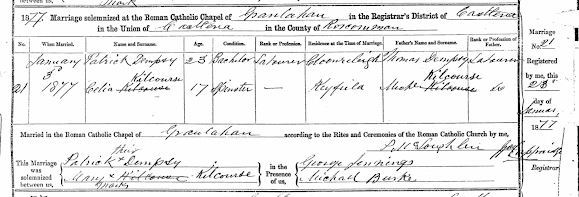 1877 Marriage solemnized at the Roman Catholic Chapel of Granlahan in the Registrar's District of Castlerea
in the Union of Castlerea in the County of Roscommon
No. When Married. Name and Surname. Age. Condition. Rank or Profession. Residence at the Time of Marriage. Father's Name and Surname. Rank or Profession of Father.
21 January 3d 1877
Patrick Dempsy 23 Bachelor Labourer Thomas Dempsy Labourer
Kilcourse Kilcourse
Celia Kilcourse 17 Spinster — Keyfield Kilcourse do
Marriage
21
Registered
by me, this
23d
day of
January
1877
Registrar.
Married in the Roman Catholic Chapel of Granlahan according to the Rites and Ceremonies of the Roman Catholic Church by me,
This Marriage was solemnized between us,
their
Patrick + Dempsy
Mary + Kilcourse Kilcourse
marks
in the Presence of us,
George Jennings
Michael Burke